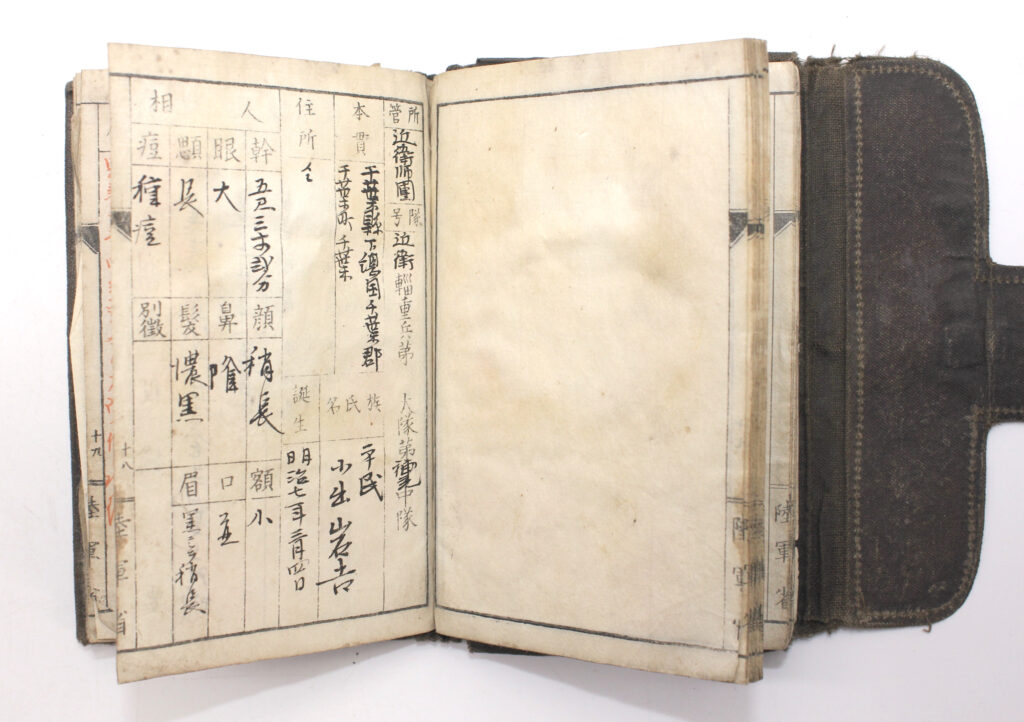 所管 近衛師團 隊号 近衛輜重兵第 大隊第 中隊
本貫 千葉縣下總国千葉郡
千葉町千葉
族氏名 平民
小出岩吉
住所 仝
誕生 明治七年三月四日
人相
幹 五尺三寸弐分 顔 稍長 額 小
眼 大 鼻 隆 口 並
顋 長 髪 濃黒 眉 黒シテ稍長
痘 種痘 別徴
十八
陸軍省
十九
陸軍
陸軍
陸軍省